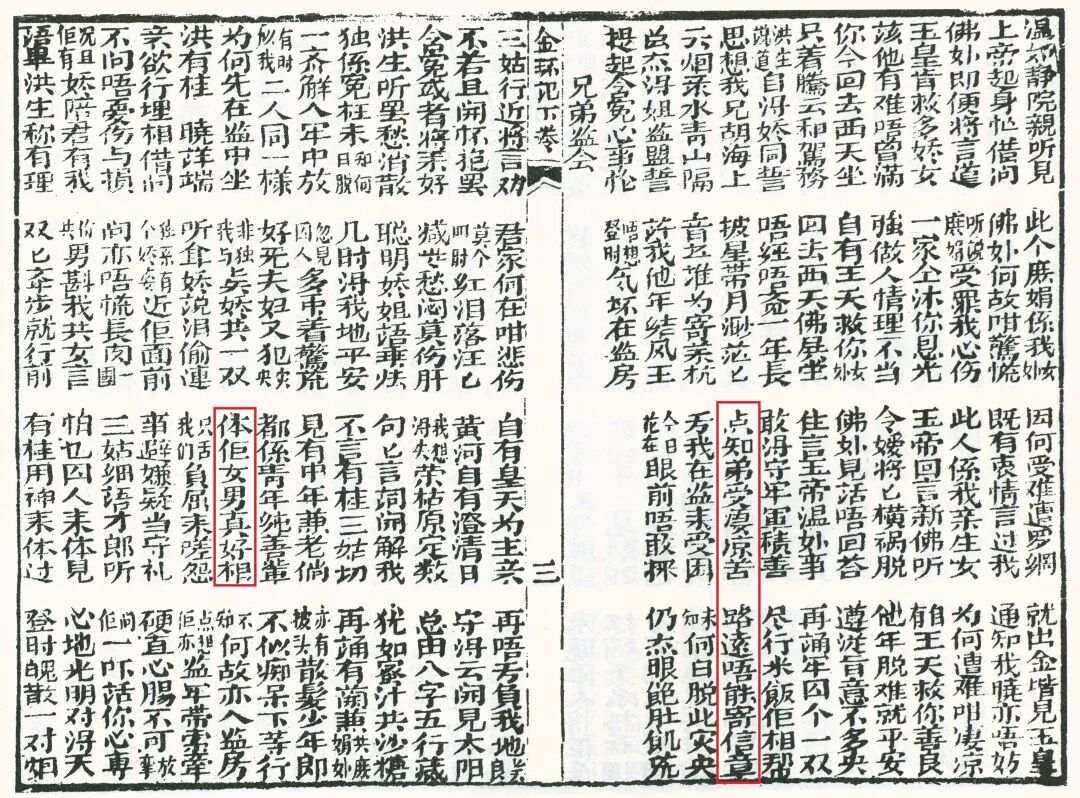 温妙静院親听見
此个麻娟係我女
因何受难遭罗網
就出金堦見玉皇
上帝起身忙借问
佛妙何故咁驚慌
既有衷情言过我
通知我曉亦唔妨
佛妙即便將言道
听说麻娟受罪我心伤
此人係我亲生女
为何遭难咁凄凉
玉皇肯救多娇女
一家全沐你恩光
玉帝回言新佛听
自有王天救你善良
該他有难唔曾滿
強做人情理不当
令嫒將匕横祸脱
他年脱难就平安
你今回去西天坐
自有王天救你女
佛妙見话唔回答
遵漎旨意不多央
只着騰云和駕務
回去西天佛屋坐
住言玉帝温妙事
再誦牢囚个个双
洪生说道自淂娇同誓
唔經唔覚一年長
敢淂守牢軍積善
尽行米飯佢相帮
思想我兄胡海上
披星带月渺茫匕
点知弟受凄凉苦
路遠唔能寄信章
六烟柔水青山隔
音书准为寄柔杭
夸我在监未受困
未知何日脱此灾央
虽杰淂姐监盟誓
若我他年结凤王
今日花在眼前唔敢採
仍杰眼飽肚飢荒
提起含冤心事忙
登时唔想气坏在监房
兄弟监会
金环记下卷
三
三姑行近将言劝
君家何在咁悲伤
自有皇天为主張
再唔夸負我地郎
不若且開怀抱罢
莫个四时紅泪落汪匕
黄河自有澄清日
守淂云開見太阳
含冤或者將来好
藏世愁闷真伤肝
我想淂失荣枯原定数
总由八字五行藏
洪生听罢愁消散
聪明娇姐語無烘
句匕言詞開解我
犹如蜜汁共沙糖
独係冤枉未知何日脱
几时淂我地平安
不言有桂三姑切
再誦有蘭兼洪娟妙
一齐觧入牢中放
忽見囚人多串着驚慌
見有中年兼老倘
亦有披头散髮少年郎
有时似我二人同一様
好死夫妇又犯央
都係青年純善輩
不似痴呆下等行
为何先在监中坐
非独我与贞娇共一双
体佢女男真好相
不知何故亦入监房
洪有桂 曉詳端
听耸娇説泪偷連
只话我们負屈未嗟怨
点想佢亦监年带索牵
亲欲行埋相借問
独系有个娇安近佢面前
事避嫌疑当守礼
硬直心腸不可放
不问唔憂伤与損
问亦唔慌長肉一團
三姑細語才郎听
佢问一吓话你心專
况且佢有娇陪君有我
共男斟我共女言
怕乜囚人来体見
心地光明对淂天
语畢洪生称有理
双匕奔步就行前
有桂用神来体过
登时魄散一对烟